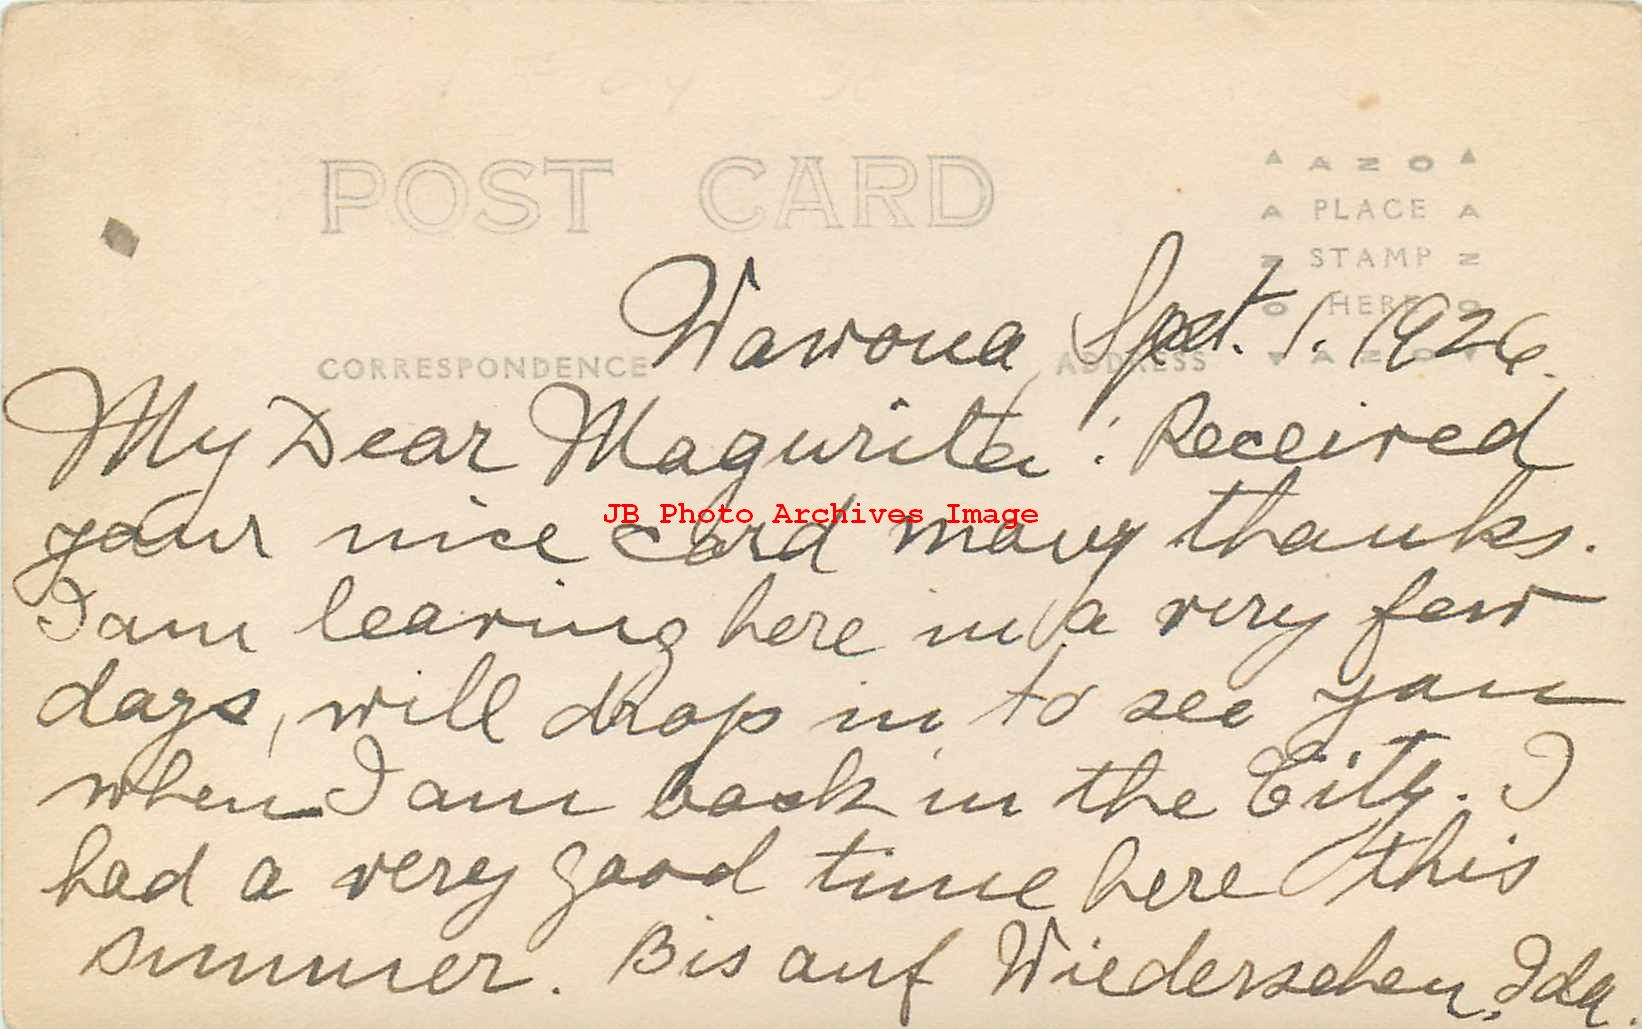 POST CARD
AZO
PLACE
STAMP
HERE
AZO
CORRESPONDENCE
ADDRESS
Wawona, Spet. 1. 1926.
My Dear Magurita: Received
your nice card many thanks.
I am leaving here in a very few
days, will drop in to see you
when I am back in the City. I
had a very good time here this
summer. Bis auf Wiedersehen, Ida.
JB Photo Archives Image